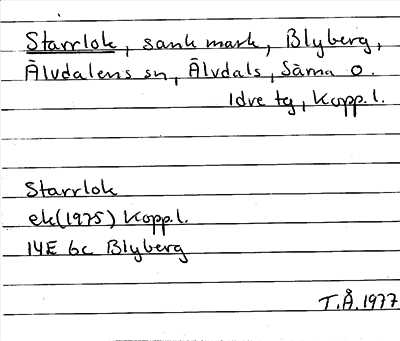 Starrlok, sank mark, Blyberg,
Älvdalens sn, Älvdals, Särna o.
Idre tg, Kopp.l.
Starrlok
ek(1975) Kopp.l.
14E 6c Blyberg
T.Å.1977